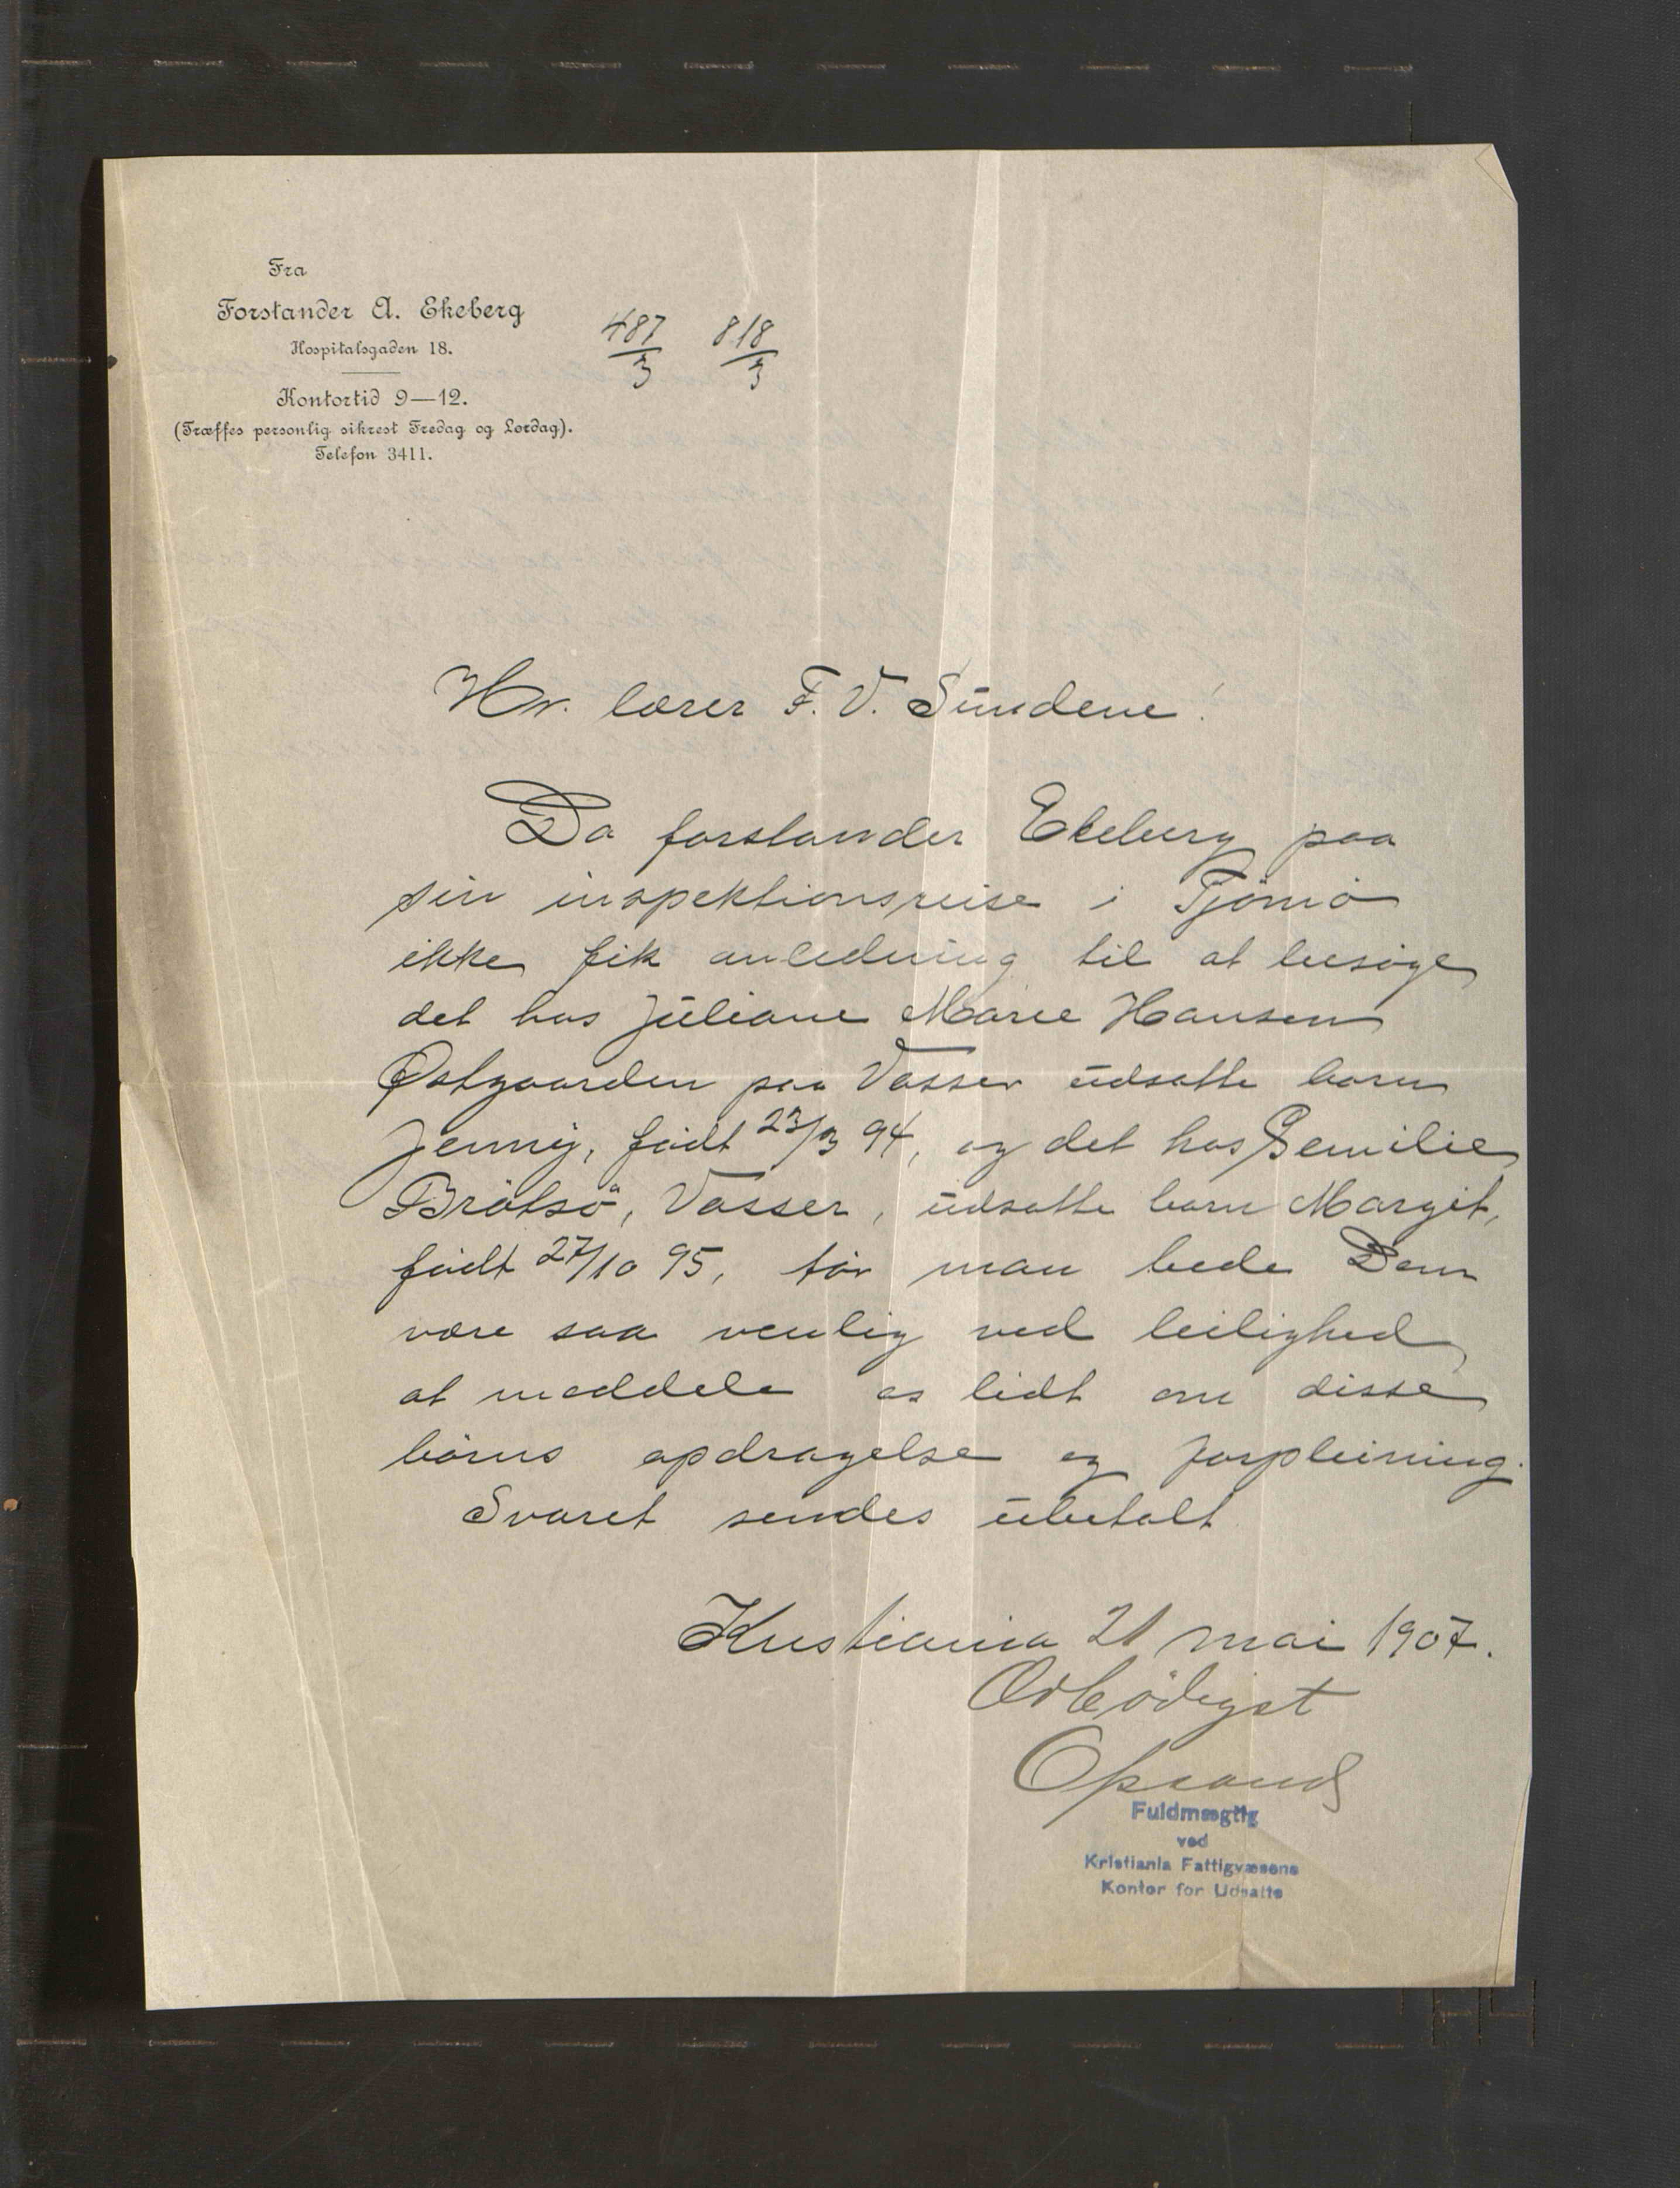 Fra
Forstander A. Ekeberg
Hospitalsgaden 18.
Kontortid 9—12.
(Træffes personlig sikrest Fredag og Lørdag).
Telefon 3411.
487/3 818/3
Hr. lærer F. V. Sundene!
Da forstander Ekeberg paa
sin inspektionsreise i Tjömö
ikke fik anledning til at besöge
det hos Juliane Marie Hansen
Østgaarden paa Vasser udsatte barn
Jenny, födt 23/3 94, og det hos Bemilie
Brötsö, Vasser, udsatte barn Margit,
födt 27/10 95, tör man bede Dem
være saa venlig ved leilighed
at meddele os lidt om disse
börns opdragelse og forpleining.
Svaret sendes ubetalt
Kristiania 21 mai 1907.
Ærbödigst
Fuldmægtig
ved
Kristiania Fattigvæsens
Kontor for Udsatte